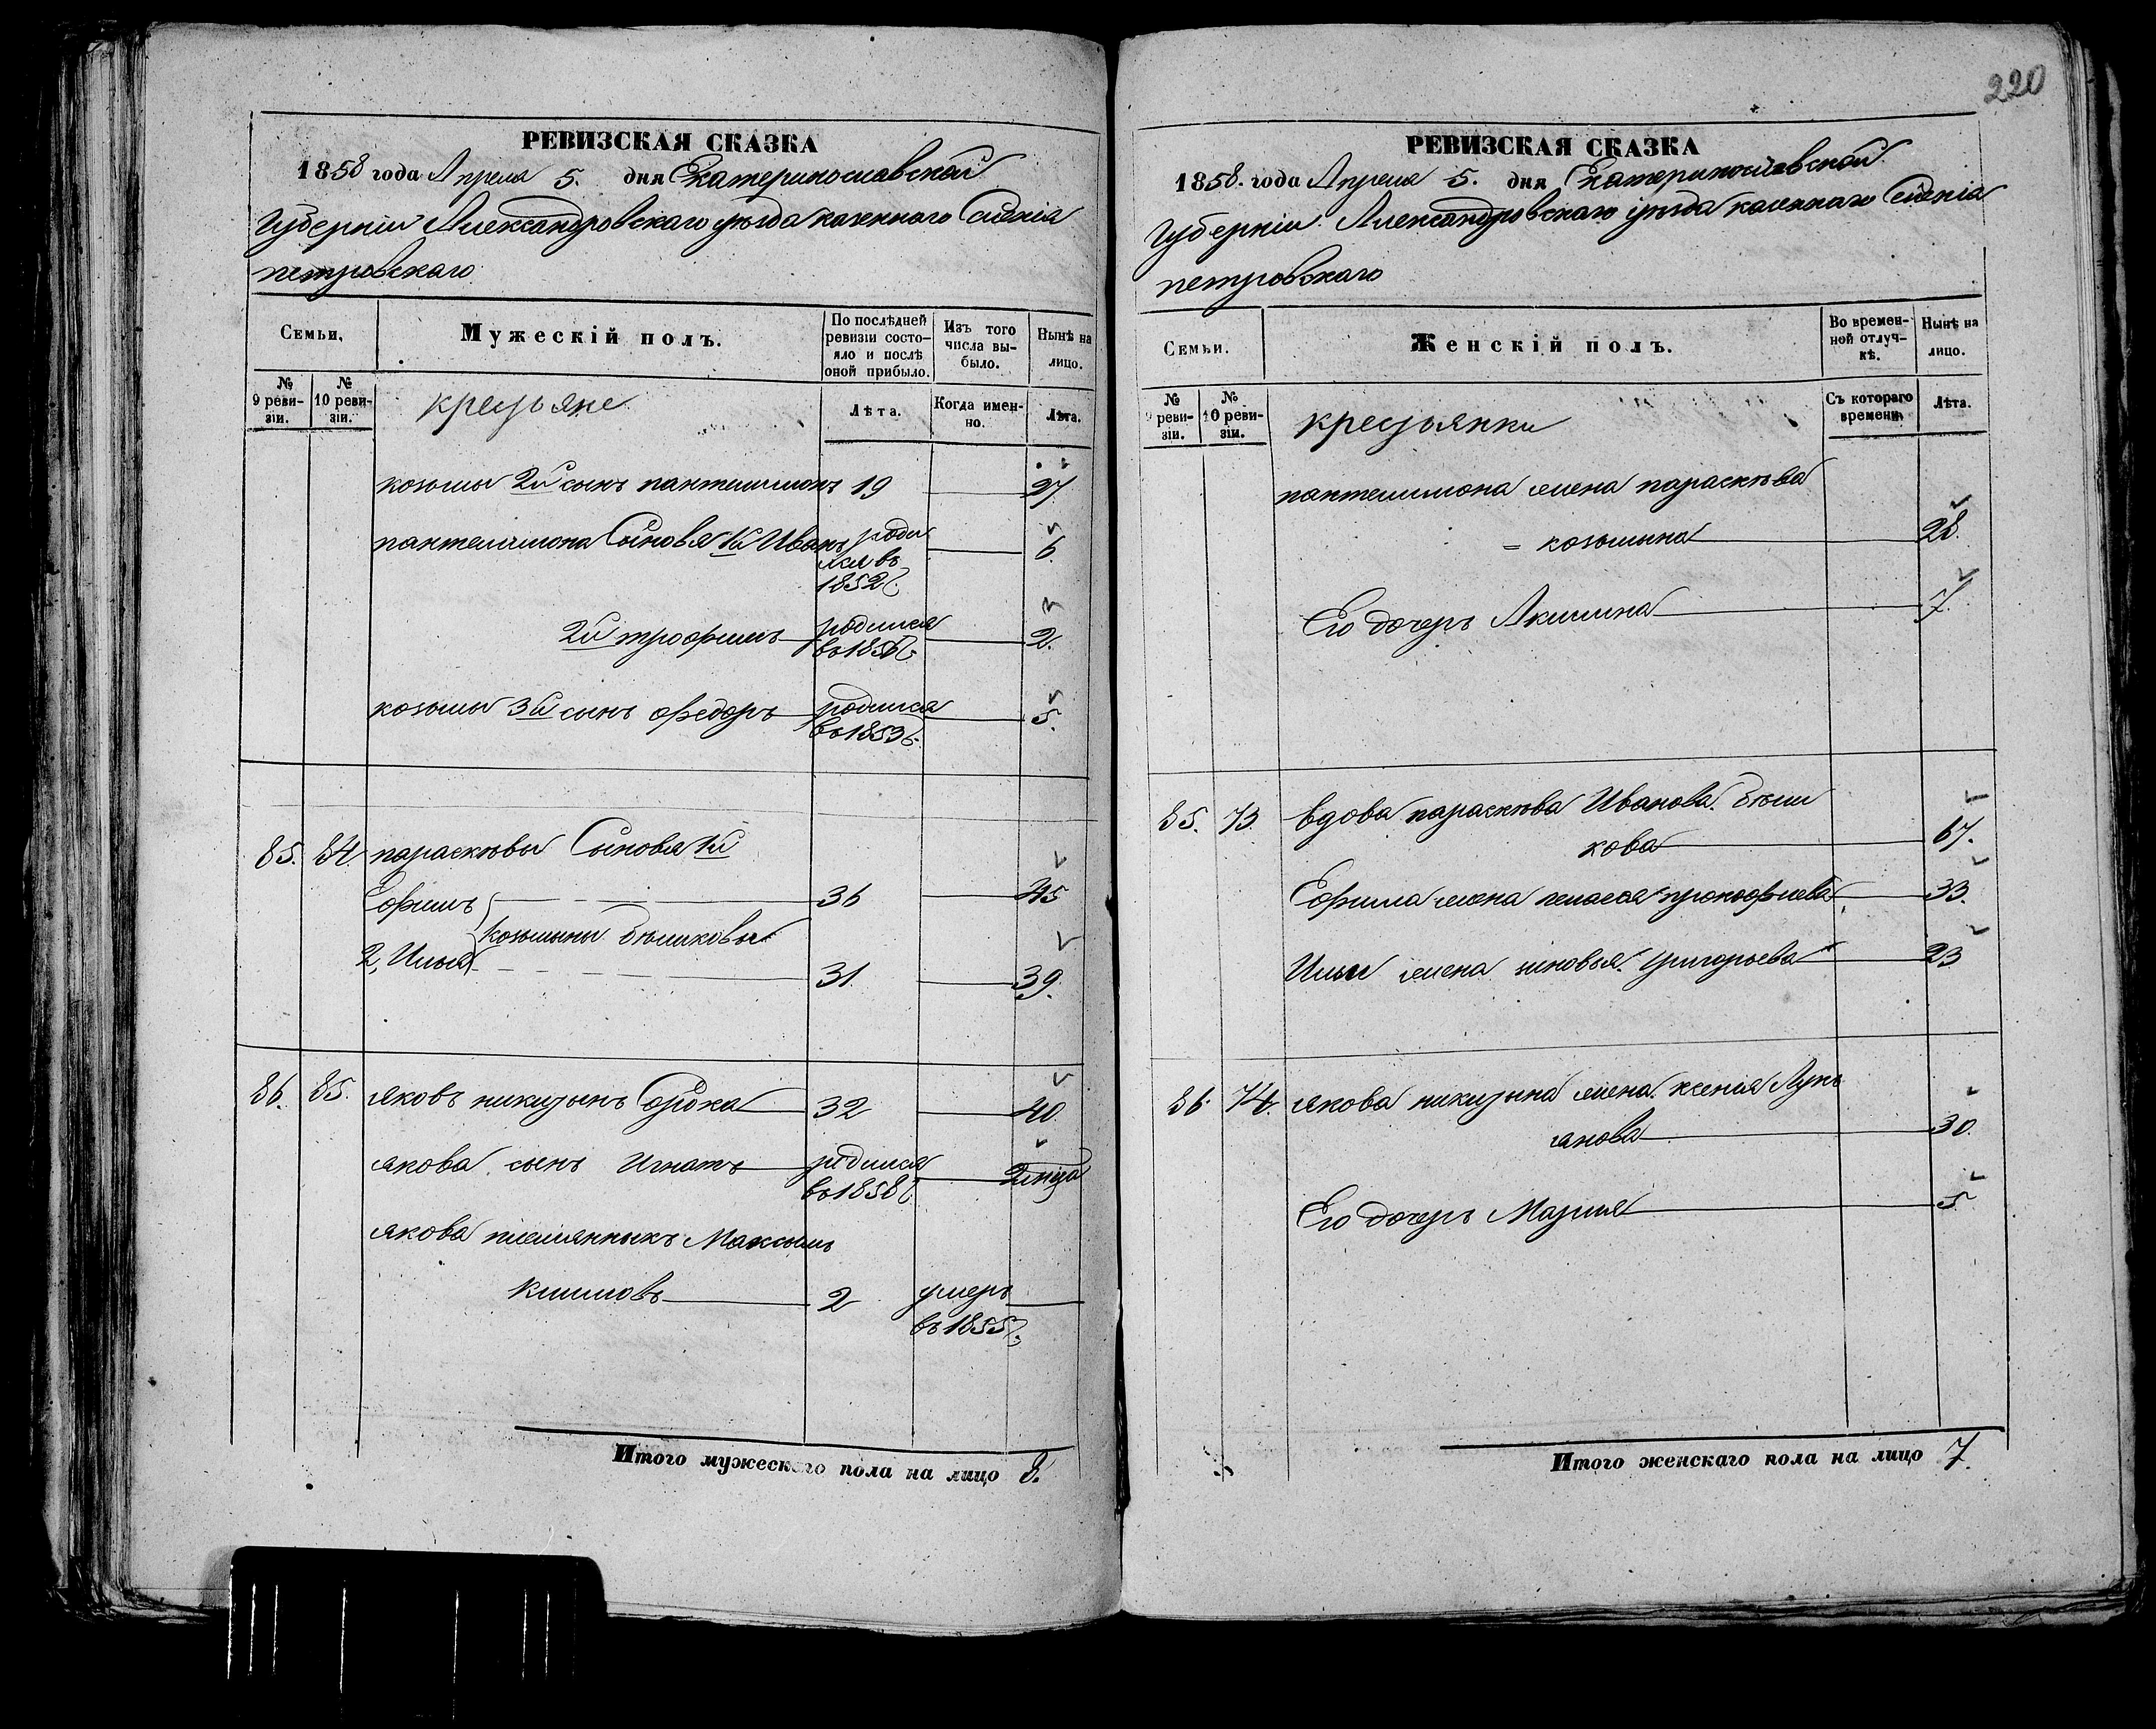 220
РЕВИЗСКАЯ СКАЗКА
1858 года Апреля 5. дня Екатеринославской
Губерніи Александровскаго уѣзда казеннаго Селенія
петровскаго
Семьи,
Мужескій полъ.
По послѣдней ревизіи состояло и послѣ оной прибыло.
Изъ того числа выбыло.
Нынѣ на лицо.
№ 9 ревизіи.
№ 10 ревизіи.
крестьяне
Лѣта.
Когда именно.
Лѣта.
козьмы 2й сынъ пантелимонъ 19 27
пантелимона Сыновья 1й Иванъ роди
лся въ 6.
1852 г.
2й трофимъ родился
въ 1856 г. 2.
козьмы 3й сынъ федоръ родился
въ 1853 г. 5.
85. 84. параскѣвы Сыновья 1й
Ефимъ 36 45
козьмины Бѣликовы
2, Илья 31 39.
86. 85. яковъ никитинъ Сорока 32 40
якова сынъ Игнатъ родился
въ 1858 г. 2 мца
якова племянныкъ Максимъ
климовъ 2 умеръ
въ 1855 г.
Итого мужескаго пола на лицо 8.
РЕВИЗСКАЯ СКАЗКА
1858. года Апреля 5. дня Екатеринославской
Губерніи Александровскаго уѣзда казеннаго Селенія
петровскаго
Семьи.
Женскій полъ.
Во временной отлучкѣ.
Нынѣ на лицо.
№ 9 ревизіи.
№ 10 ревизіи.
крестьянки
Съ котораго времени.
Лѣта.
пантелимона жена параскѣва
= козьмина 28.
Его дочеръ Акилина 7.
85. 73. вдова параскѣва Иванова Бѣли
кова 67.
Ефима жена пелагея прокофиева 33.
Ильи жена зиновья Григорьева 23
86. 74. якова никитина жена ксенія Лукъ
янова 30.
Его дочеръ Марія 5
Итого женскаго пола на лицо 7.